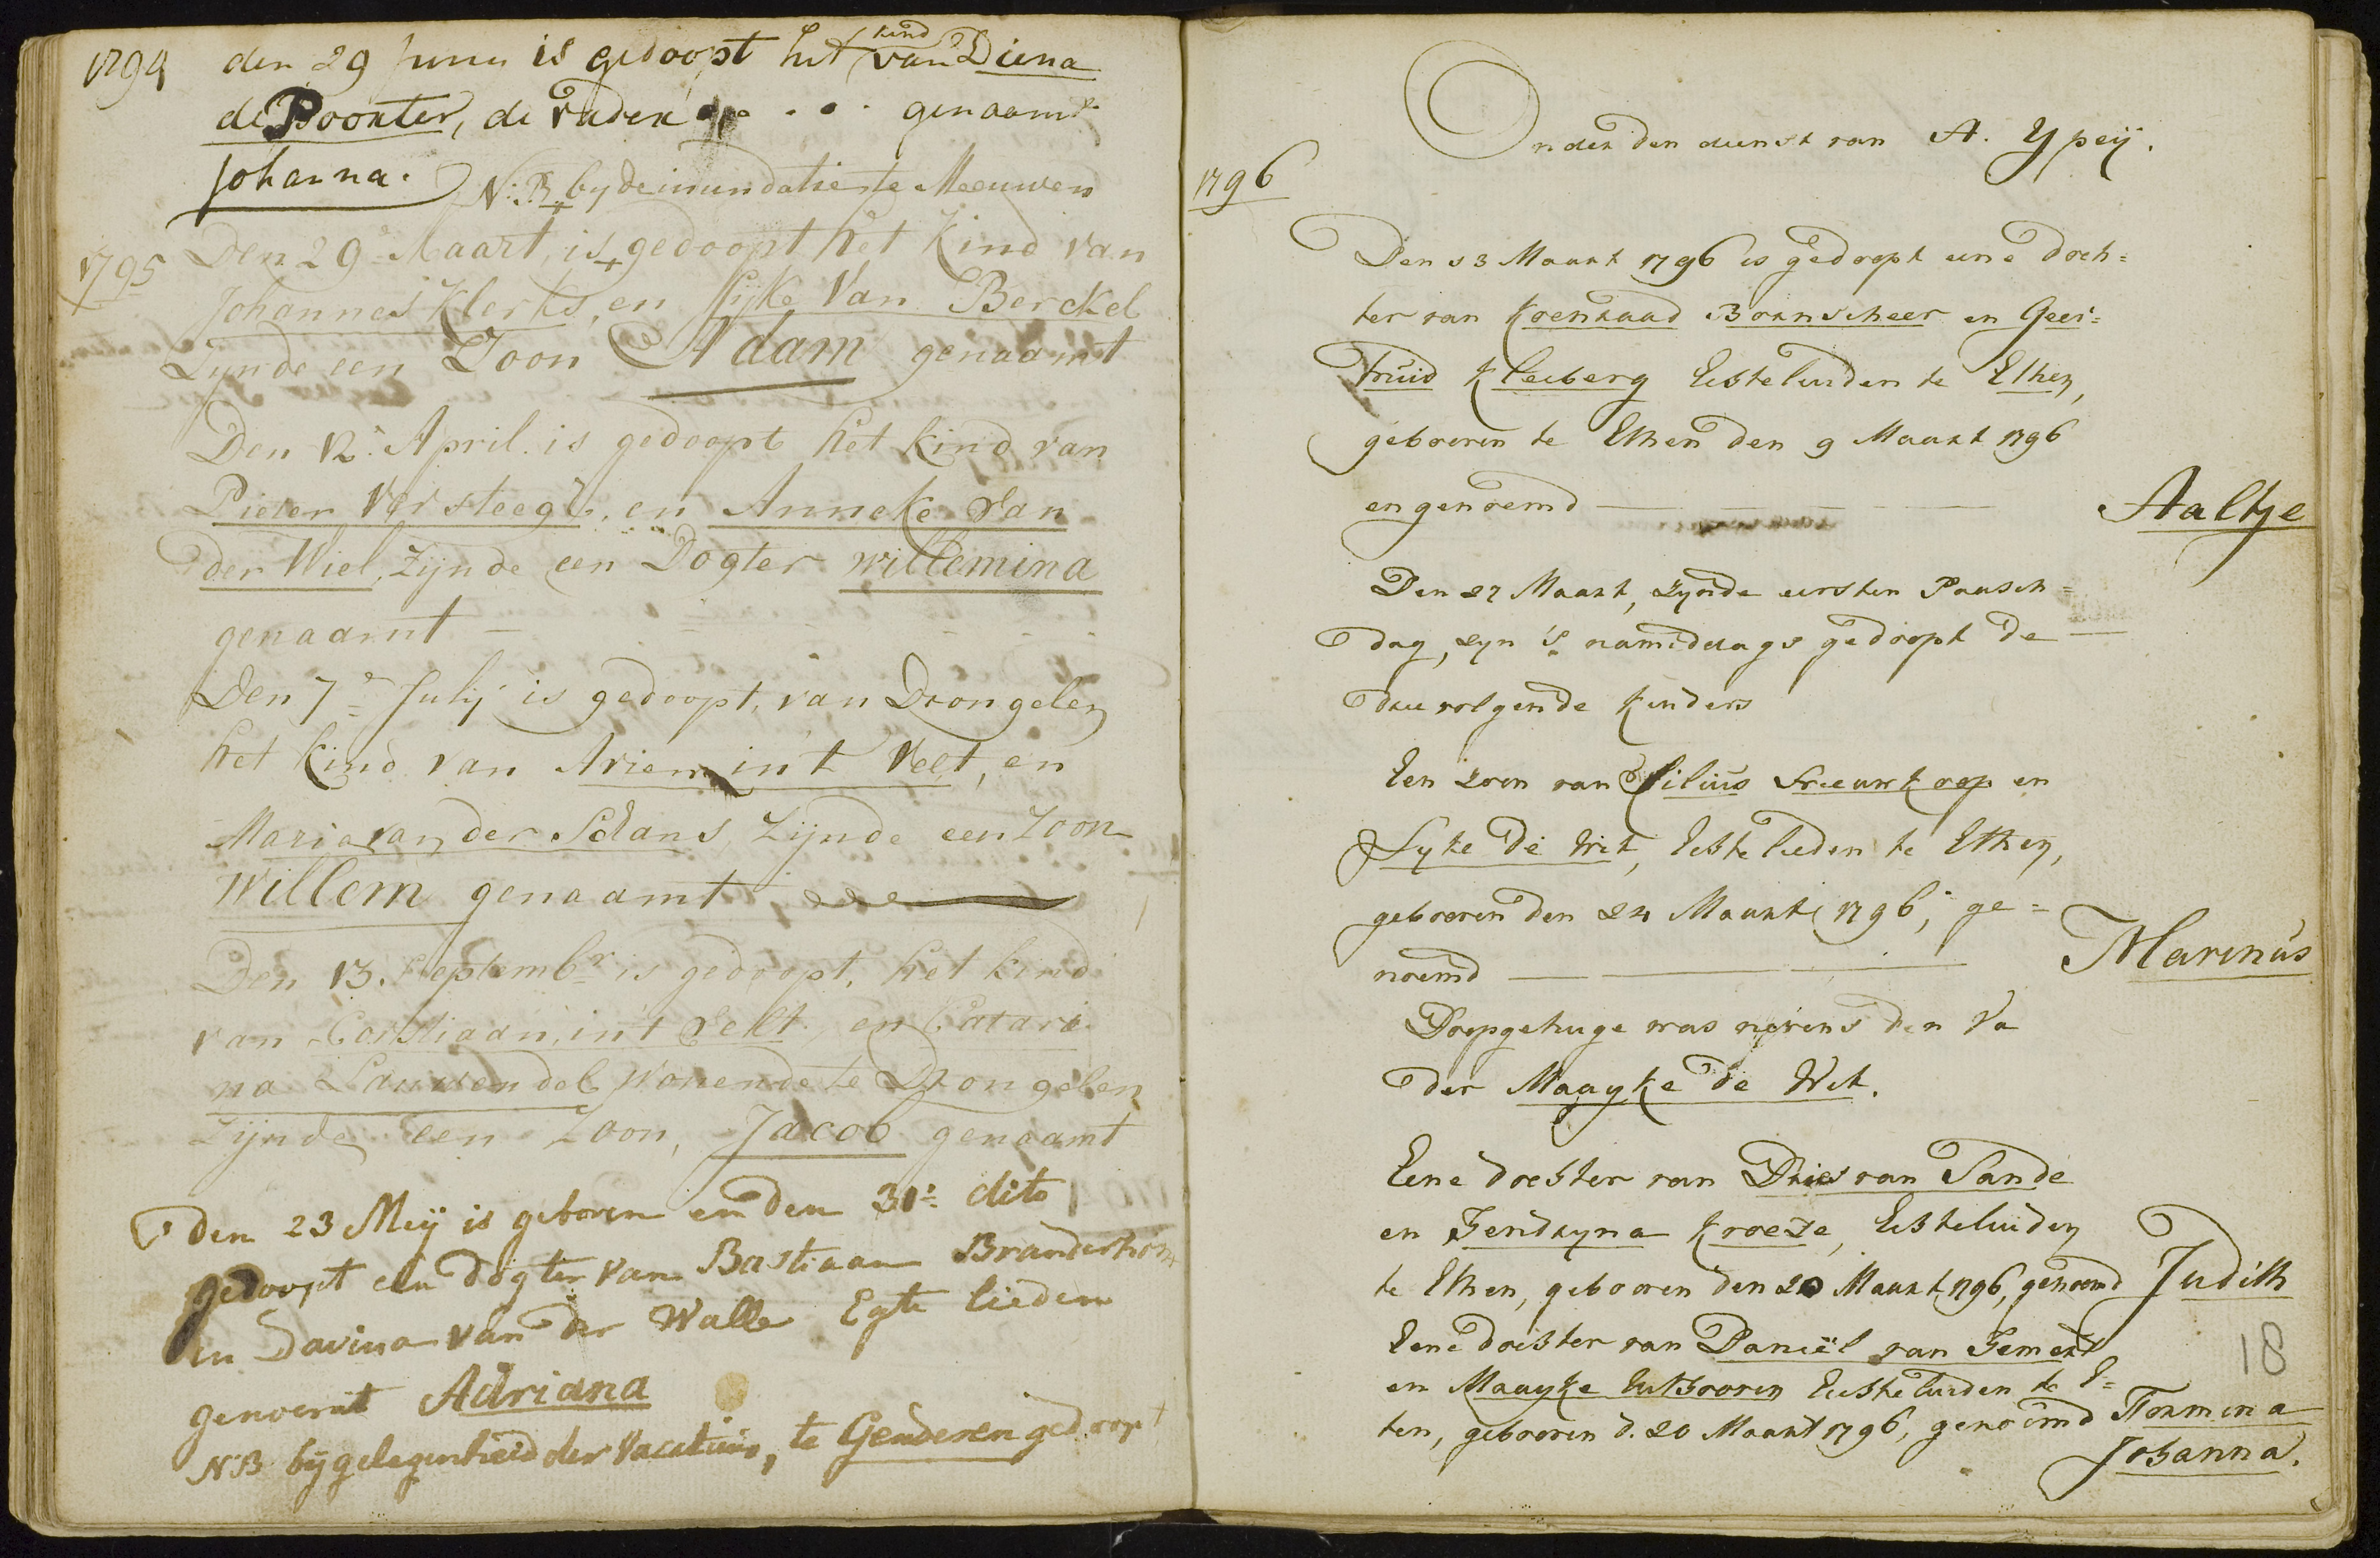 1794 den 29 Junii is gedoopt het kind van Diena
de Poorter, de vader . . . . genaamt
Johanna.
N:B + by de inundatie te Meeuwen
1795 Den 29e Maart, is + gedoopt het Kind van
Johannes Klerks, en Sijke Van Berckel
Zynde een Zoon Adam genaamt
Den 12e April is gedoopt het kind van
Pieter Versteegt, en Anneke Van
der Wiel, Zijnde een Dogter willemina
genaamt
Den 7e Julij is gedoopt, van Drongelen
het kind van Arien in't Velt, en
Maria van der Schans, Zijnde een Zoon
Willem genaamt
Den 13. Septembr is gedoopt, het kind
van Corstiaan, in't Velt, en Catari
na Lauwendel wonende te Drongelen
Zijnde een Zoon, Jacob genaamt
den 23 Meij is geboren en den 31e dito
gedoopt een dogter van Bastiaan Branderhorst
en Davina van der Walle Egte lieden
genoemt Adriana
NB bij gelegenheid der Vacature, te Genderen gedoopt
Onder den dienst van A. Ypeij.
1796
Den 13 Maart 1796 is gedoopt eene doch=
ter van Koenraad Bornscheer en Geer=
truid Kleiberg Echtelieden te Ethen,
geboeren te Ethen den 9 Maart 1796
en genoemd Aaltje
Den 27 Maart, zynde eersten Paasch=
dag, zyn 's namiddags gedoopt de
drie volgende kinders
Een zoon van Silius Sneeurkoop en
Syke de Wit, Echtelieden te Ethen,
gebooren den 24 Maart 1796, ge=
noemd Marinus
Doopgetuige was nevens den Va
der Maayke de Wit.
Eene dochter van Dries van Sande
en Hendryna Kroeze, Echtelieden
te Ethen, gebooren den 20 Maart 1796, genoemd Judith
Eene dochter van Daniël van Hemert
en Maayke Uithooren Echtelieden te E=
ten, gebooren d. 20 Maart 1796, genoemd Hermina
Johanna.
18